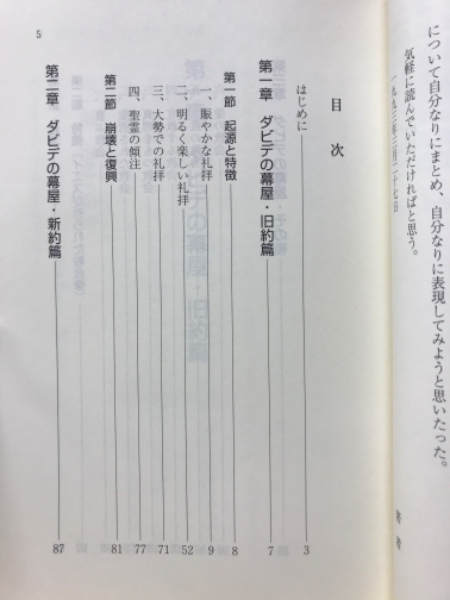 について自分なりにまとめ、自分なりに表現してみようと思いたった。
気軽に読んでいただければと思う。
一九九三年三月二十七日
著者
目次
はじめに 3
第一章 ダビデの幕屋・旧約篇 7
第一節 起源と特徴 8
一、賑やかな礼拝 9
二、明るく楽しい礼拝 52
三、大勢での礼拝 71
四、聖霊の傾注 77
第二節 崩壊と復興 81
第二章 ダビデの幕屋・新約篇 87
5